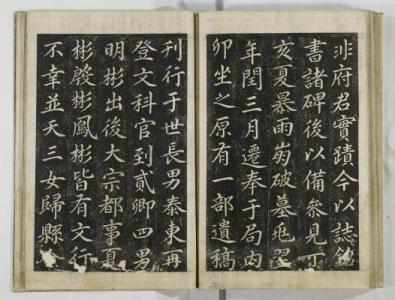 非府君實蹟今以誌銘
書諸碑後以備參見丁
亥夏暴雨崩破墓兆翌
年閏三月遷奉于局內
卯坐之原有一部遺稿
刊行于世長男泰東再
登文科官到貳卿四男
明彬出後大宗都事夏
彬殷彬鳳彬皆有文行
不幸並夭三女歸縣